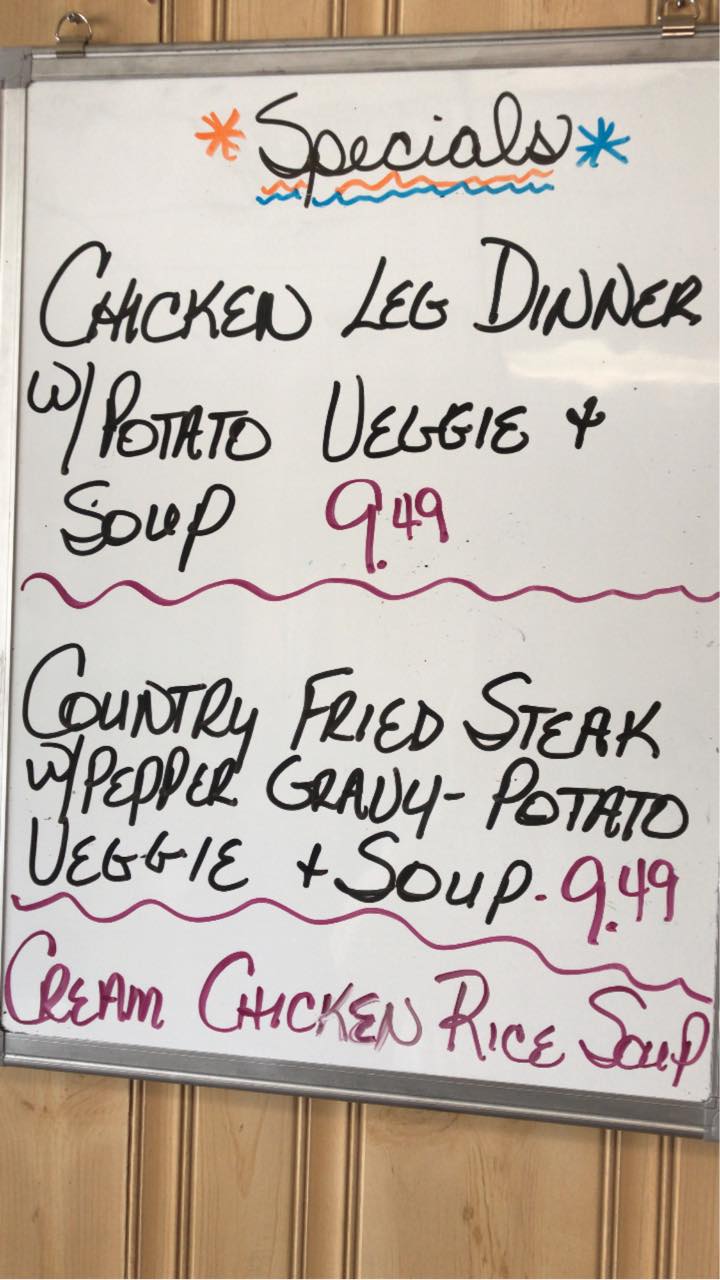 *Specials*
CHICKEN LEG DINNER
W/ POTATO VEGGIE +
SOUP 9.49
COUNTRY FRIED STEAK
W/ PEPPER GRAVY- POTATO
VEGGIE + SOUP. 9.49
CREAM CHICKEN RICE SOUP